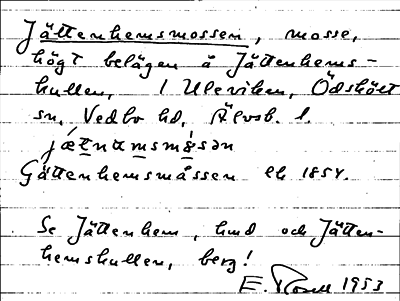 Jättenhemsmossen, mosse,
högt belägen å Jättenhems-
kullen, i Uleviken, Ödskölt
sn, Vedbo hd, Älvsb. l.
jætnamsmåsən
Gättenhemsmåssen Ek 1854.
Se Jättenhem, hmd och Jätten-
hemskullen, berg!
E. 1953